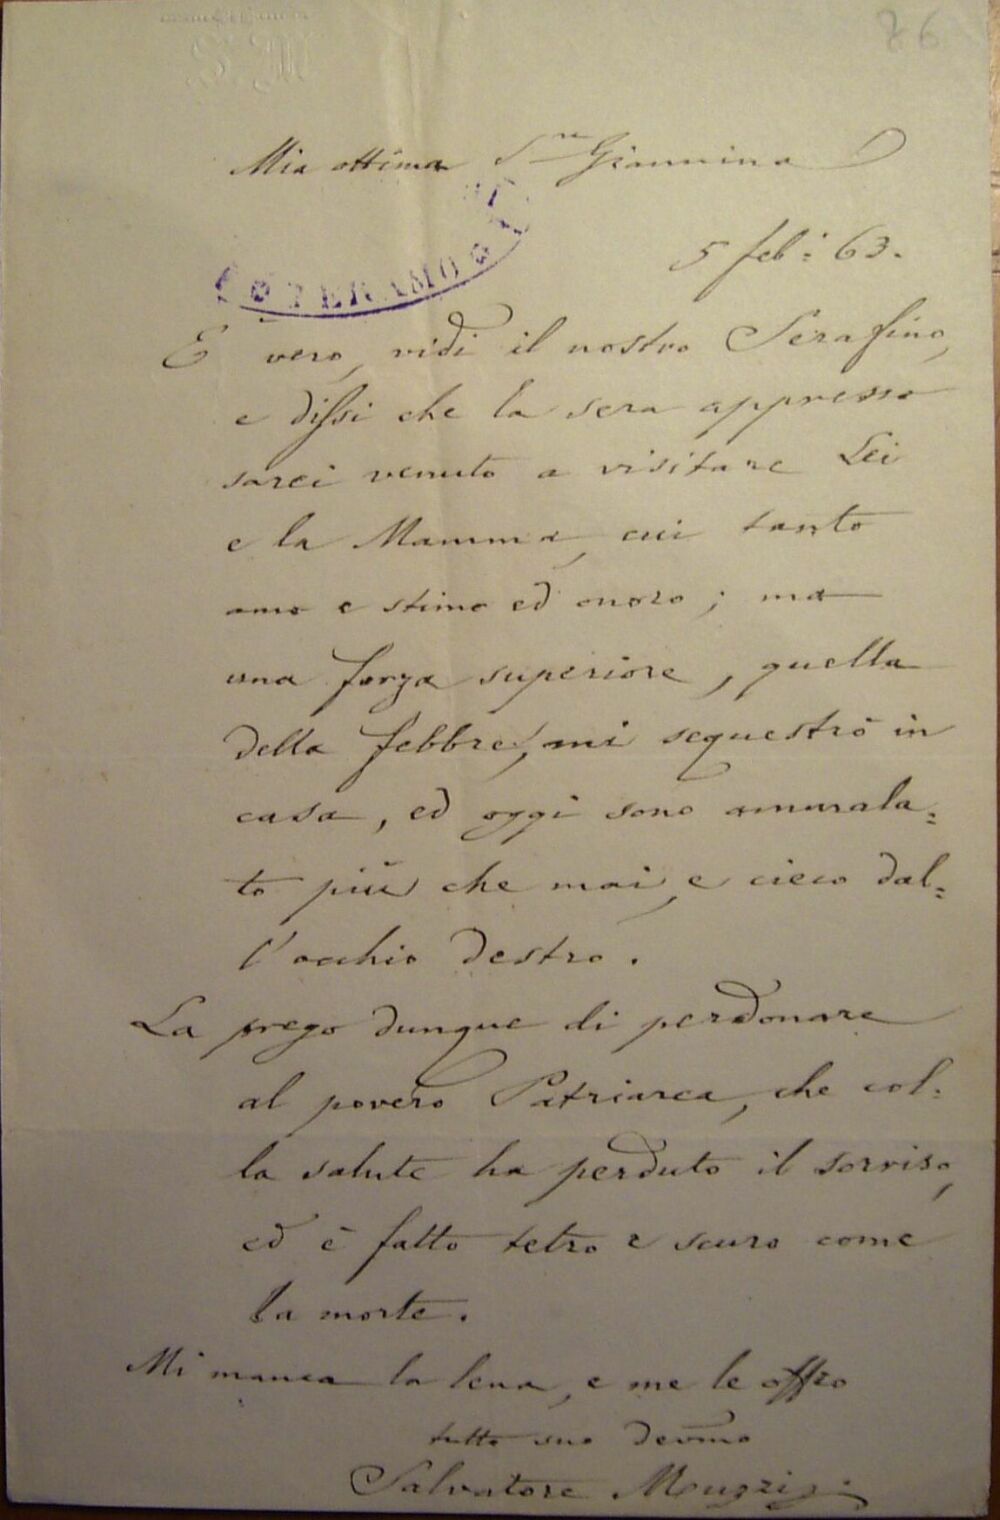 86
Mia ottima S.ra Giannina
5 feb: 63.
TERAMO
È vero, vidi il nostro Serafino,
e dissi che la sera appresso
sarei venuto a visitare Lei
e la Mamma, cui tanto
amo e stimo ed onoro; ma
una forza superiore, quella
della febbre, mi sequestrò in
casa, ed oggi sono ammala=
to più che mai, e cieco dal=
l'occhio destro.
La prego dunque di perdonare
al povero Patriarca, che col=
la salute ha perduto il sorriso,
ed è fatto tetro e scuro come
la morte.
Mi manca la lena, e me le offro
tutto suo devmo
Salvatore Muzzi